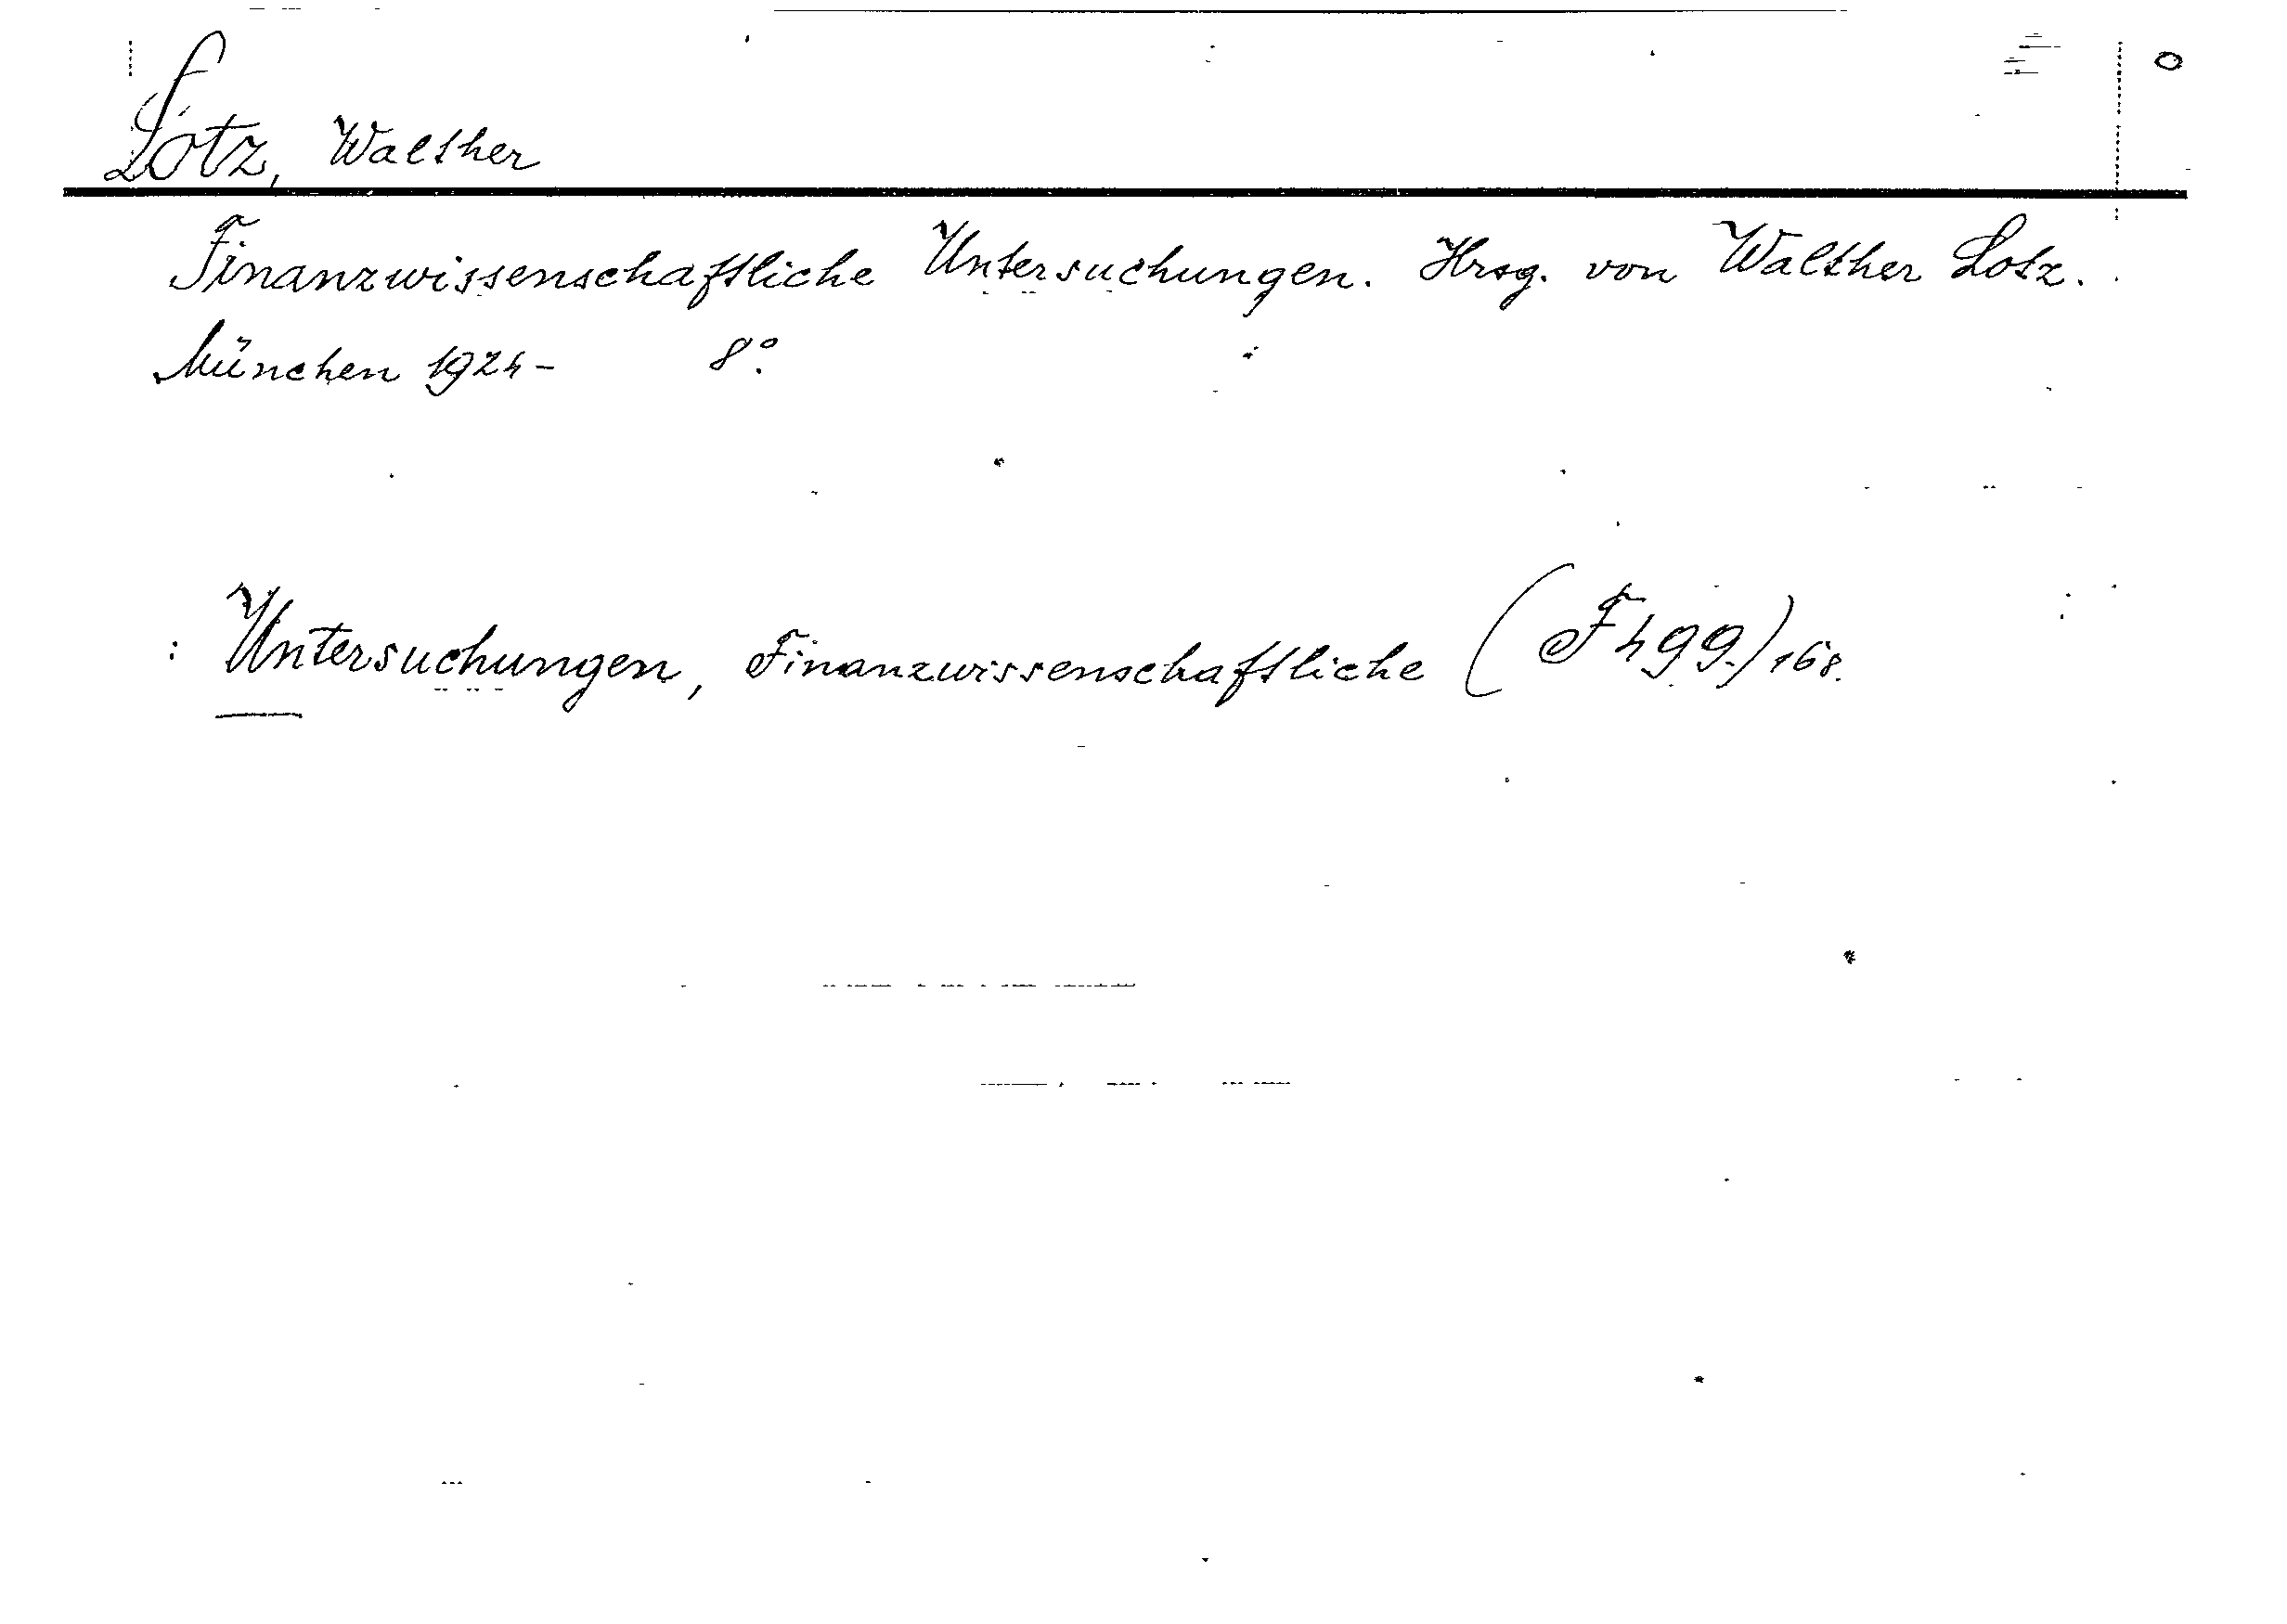 Lotz, Walther
Finanzwissenschaftliche Untersuchungen. Hrsg. von Walther Lotz.
München 1924- 8°.
: Untersuchungen, Finanzwissenschaftliche (F 499.) 168.